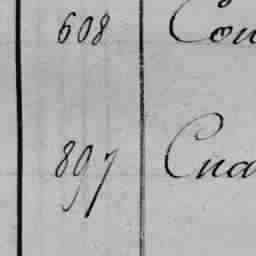 608 Cou
897 Cua